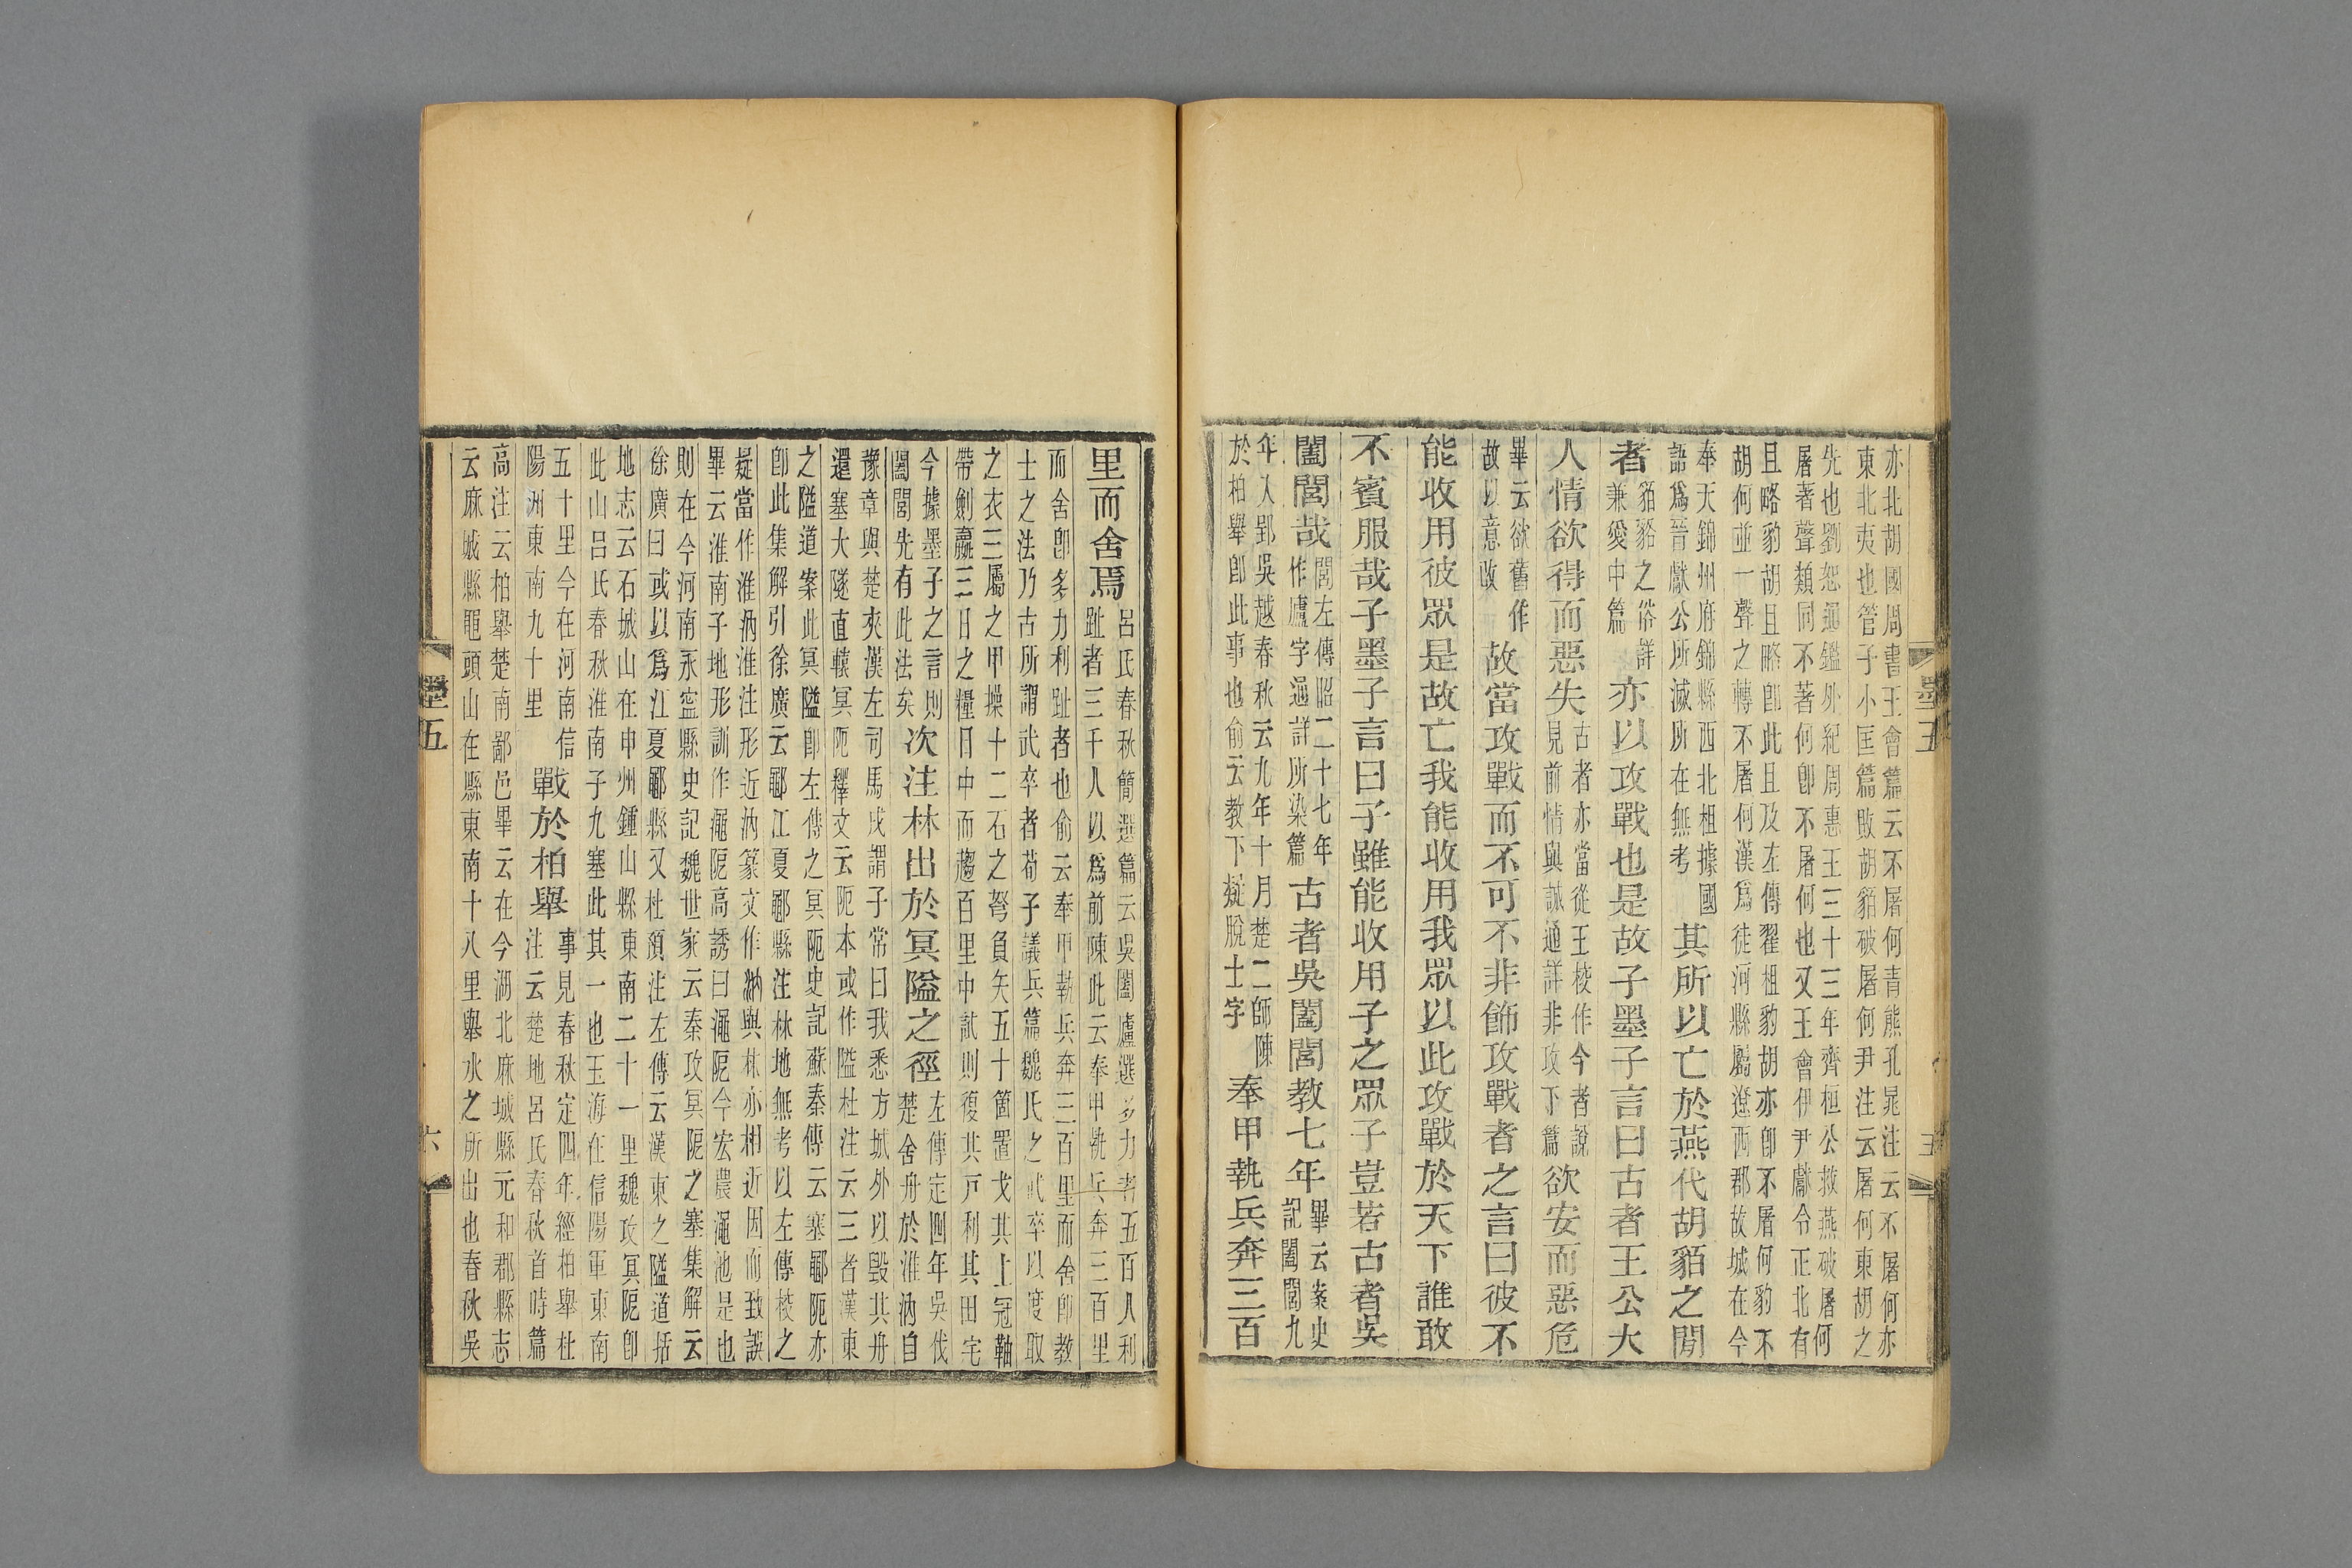 亦北胡國周書王會篇云不屠何青熊孔晁注云不屠何亦
東北夷也管子小匡篇敗胡貉破屠何尹注云屠何東胡之
先也劉恕通鑑外紀周惠王三十三年齊桓公救燕破屠何
屠著聲類同不著何卽不屠何也又王會伊尹獻令正北有
且略豹胡且略卽此且及左傳翟柤豹胡亦卽不屠何豹不
胡何並一聲之轉不屠何漢爲徒河縣屬遼西郡故城在今
奉天錦州府錦縣西北柤據國
語爲晉獻公所滅所在無考
其所以亡於燕代胡貊之閒
者
貊貉之俗詳
兼愛中篇
亦以攻戰也是故子墨子言曰古者王公大
人情欲得而惡失
古者亦當從王校作今者說
見前情與誠通詳非攻下篇
欲安而惡危
畢云欲舊作
故以意改
故當攻戰而不可不非飾攻戰者之言曰彼不
能收用彼眾是故亡我能收用我眾以此攻戰於天下誰敢
不賓服哉子墨子言曰子雖能收用子之眾子豈若古者吳
闔閭哉
閭左傳昭二十七年
作廬字通詳所染篇
古者吳闔閭教七年
畢云案史
記闔閭九
年入郢吳越春秋云九年十月楚二師陳
於柏舉卽此事也俞云教下疑脫士字
奉甲執兵奔三百
墨五
五
里而舍焉
呂氏春秋簡選篇云吳闔廬選多力者五百人利
趾者三千人以爲前陳此云奉甲執兵奔三百里
而舍卽多力利趾者也俞云奉甲執兵奔三百里而舍卽教
士之法乃古所謂武卒者荀子議兵篇魏氏之武卒以度取
之衣三屬之甲操十二石之弩負矢五十箇置戈其上冠軸
帶劍贏三日之糧日中而趨百里中試則復其戶利其田宅
今據墨子之言則
闔閭先有此法矣
次注林出於冥隘之徑
左傳定四年吳伐
楚舍舟於淮汭自
豫章與楚夾漢左司馬戌謂子常曰我悉方城外以毀其舟
還塞大隧直轅冥阨釋文云阨本或作隘杜注云三者漢東
之隘道案此冥隘卽左傳之冥阨史記蘇秦傳云塞鄳阨亦
卽此集解引徐廣云鄳江夏鄳縣注林地無考以左傳校之
疑當作淮汭淮注形近汭篆文作㴆與林亦相近因而致誤
畢云淮南子地形訓作澠阨高誘曰澠阨今宏農澠池是也
則在今河南永寍縣史記魏世家云秦攻冥阨之塞集解云
徐廣曰或以爲江夏鄳縣又杜預注左傳云漢東之隘道括
地志云石城山在申州鍾山縣東南二十一里魏攻冥阨卽
此山呂氏春秋淮南子九塞此其一也玉海在信陽軍東南
五十里今在河南信
陽洲東南九十里
戰於柏舉
事見春秋定四年經柏舉杜
注云楚地呂氏春秋首時篇
高注云柏舉楚南鄙邑畢云在今湖北麻城縣元和郡縣志
云麻城縣黽頭山在縣東南十八里舉水之所出也春秋吳
墨五
六